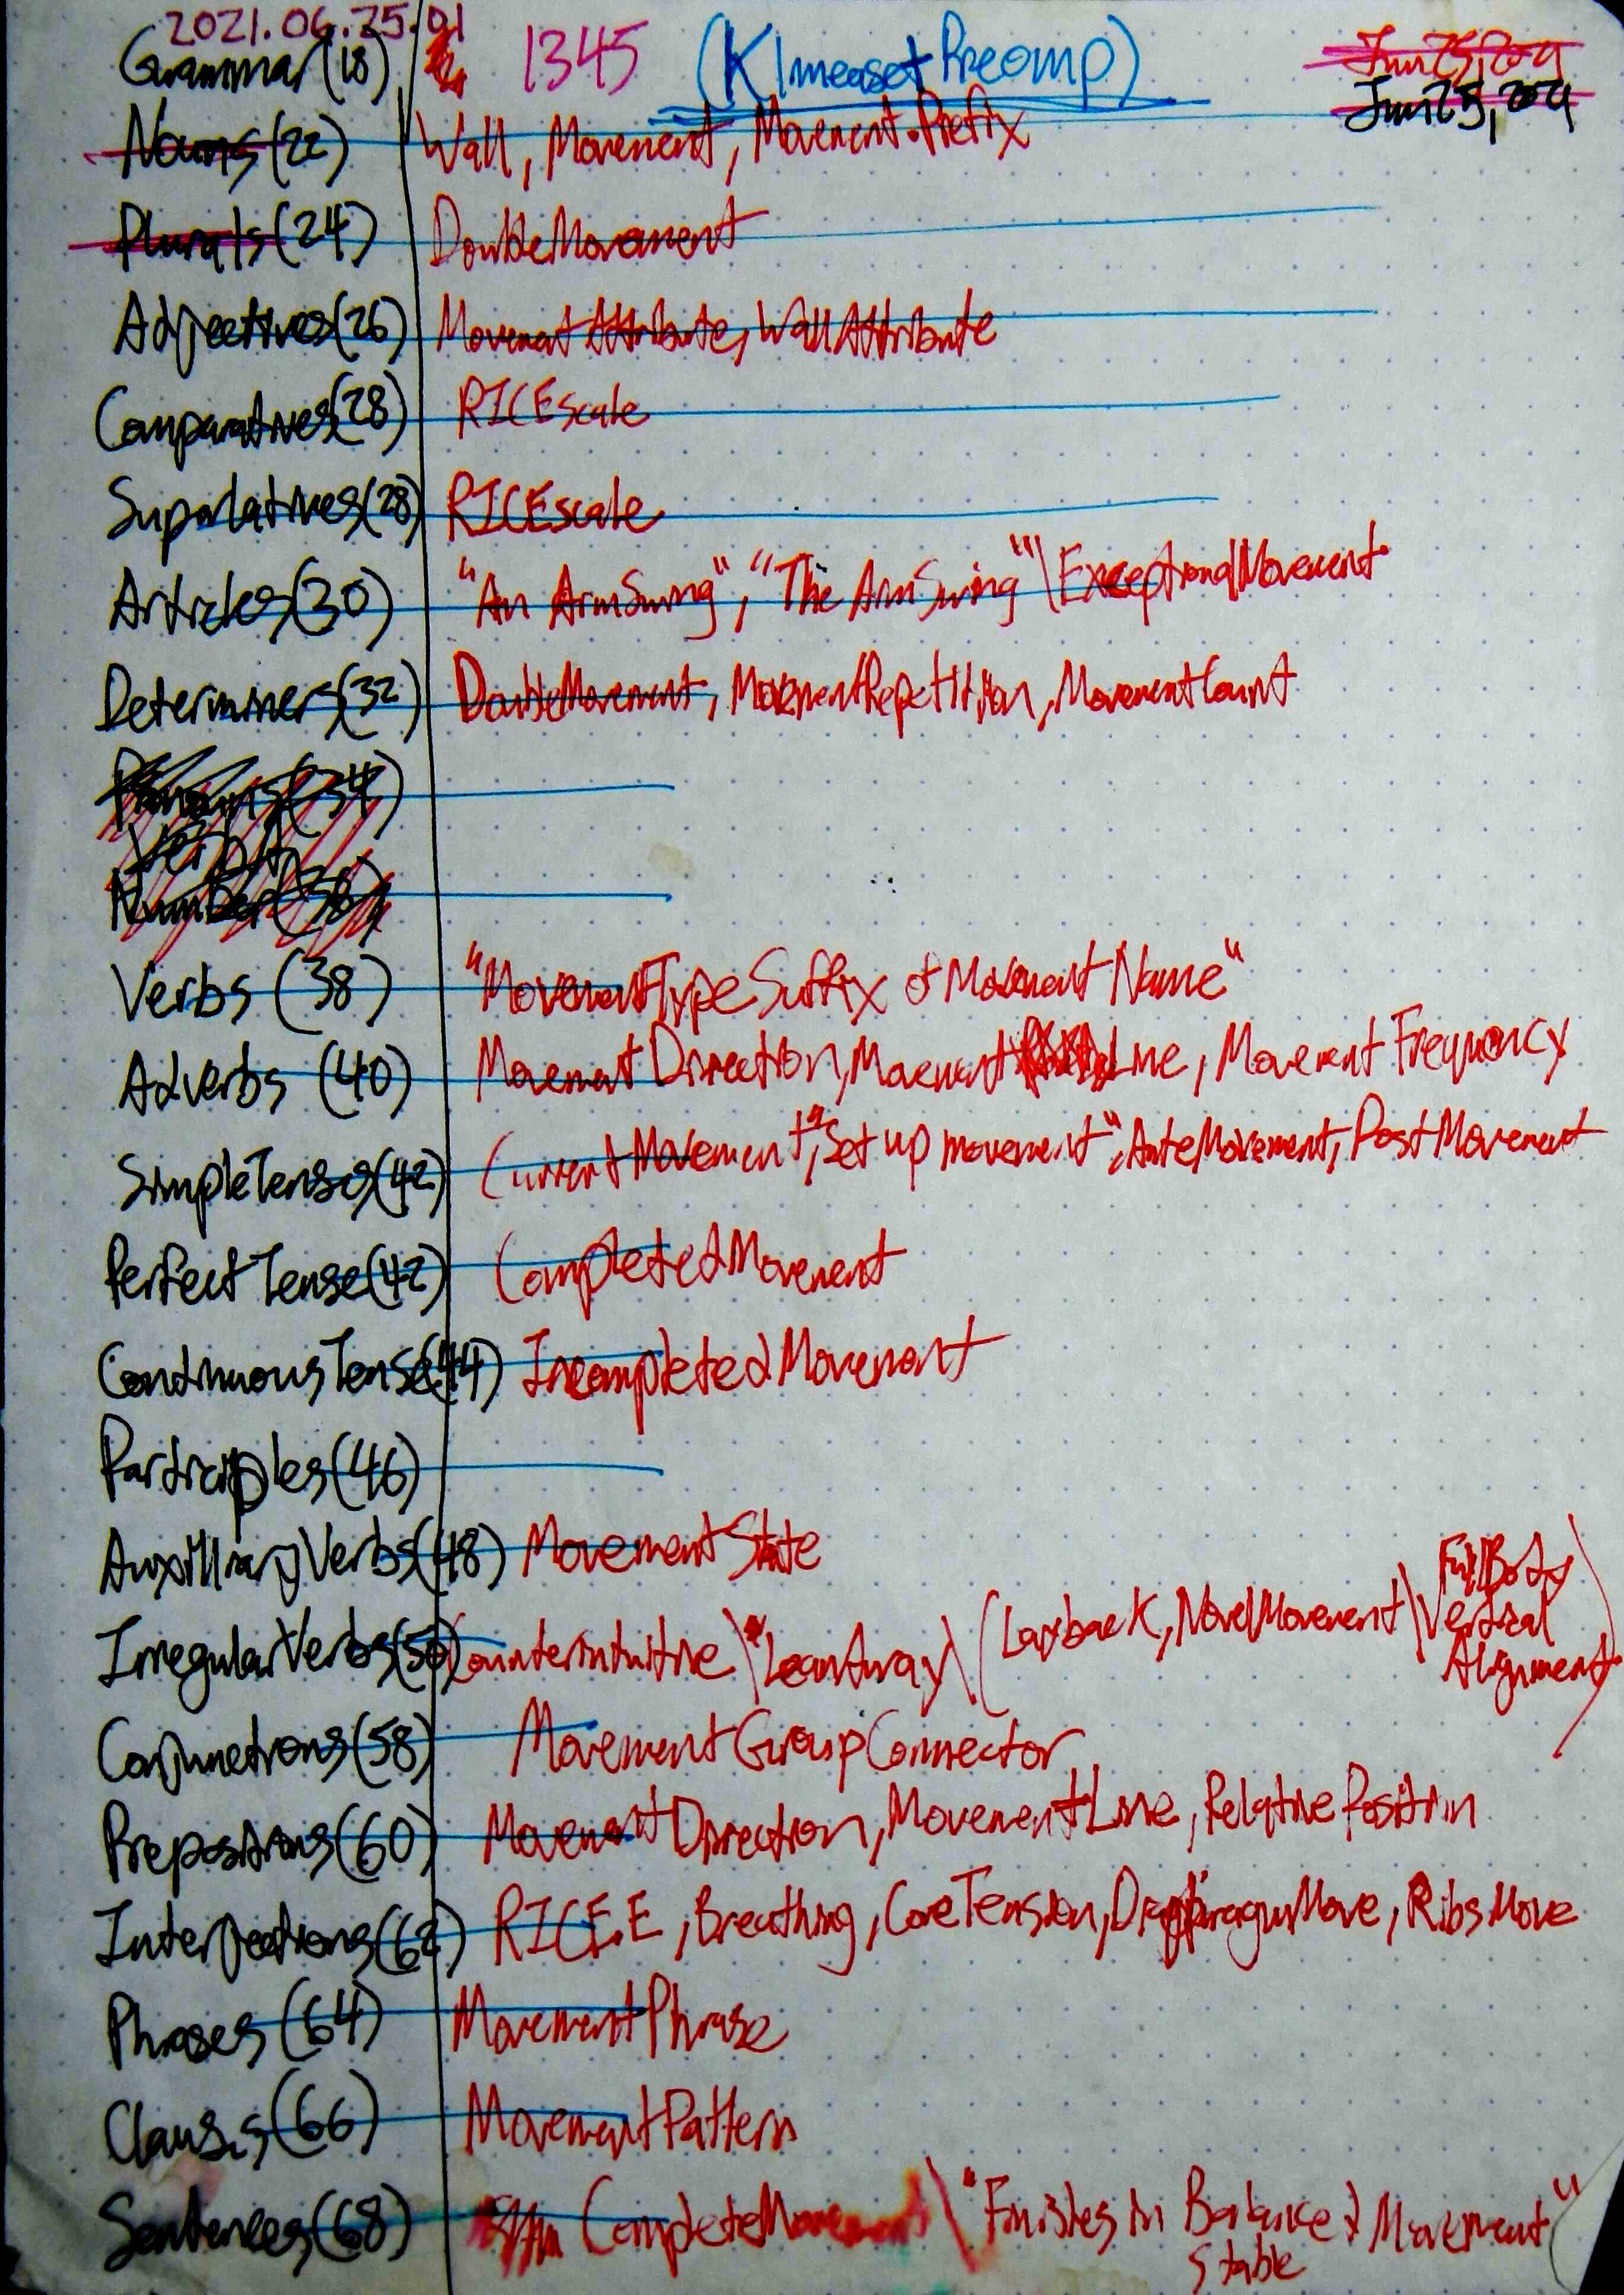 2021.06.25.01
Grammar(18) 1345 (KlmeasetPreomp) Jun25,2021
Jun25,2021
Nouns(22) Wall, Movement, Movement.Prefix
Plurals(24) DoubleMovement
Adjectives(26) MovementAttribute, WallAttribute
Comparatives(28) RICEscale
Superlatives(28) RICEscale
Articles(30) "An ArmSwing", "The ArmSwing"\ExceptionalMovement
Determiners(32) DoubleMovement, MovementRepetition, MovementCount
Pronouns(34)
Verb
Number(36)
Verbs (38) "MovementTypeSuffix of Movement Name"
Adverbs (40) MovementDirection, Movement Line, Movement Frequency
SimpleTenses(42) CurrentMovement, "Set up movement", AnteMovement, PostMovement
PerfectTense(42) CompletedMovement
ContinuousTense(44) IncompletedMovement
Participles(46)
AuxilliaryVerbs(48) MovementState
IrregularVerbs(50) Counterintuitive\"LeanAway\(Layback, NovelMovement\FullBody
Vertical
Alignment)
Conjunctions(58) MovementGroupConnector
Prepositions(60) MovementDirection, MovementLine, RelativePosition
Interjections(62) RICE.E, Breathing, CoreTension, DiaphragmMove, RibsMove
Phrases (64) MovementPhrase
Clauses(66) MovementPattern
Sentences(68) CompleteMovement\"Finishes in Balanced Movement"
Stable